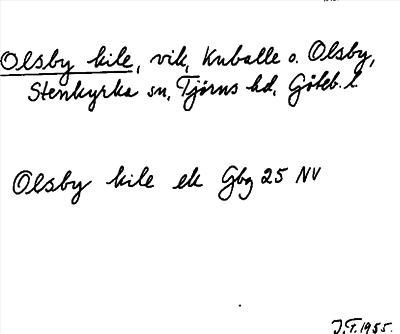 Olsby kile, vik, Kuballe o. Olsby,
Stenkyrka sn, Tjörns hd, Göteb. l.
Olsby kile ek Gbg 25 NV
J.T. 1955.